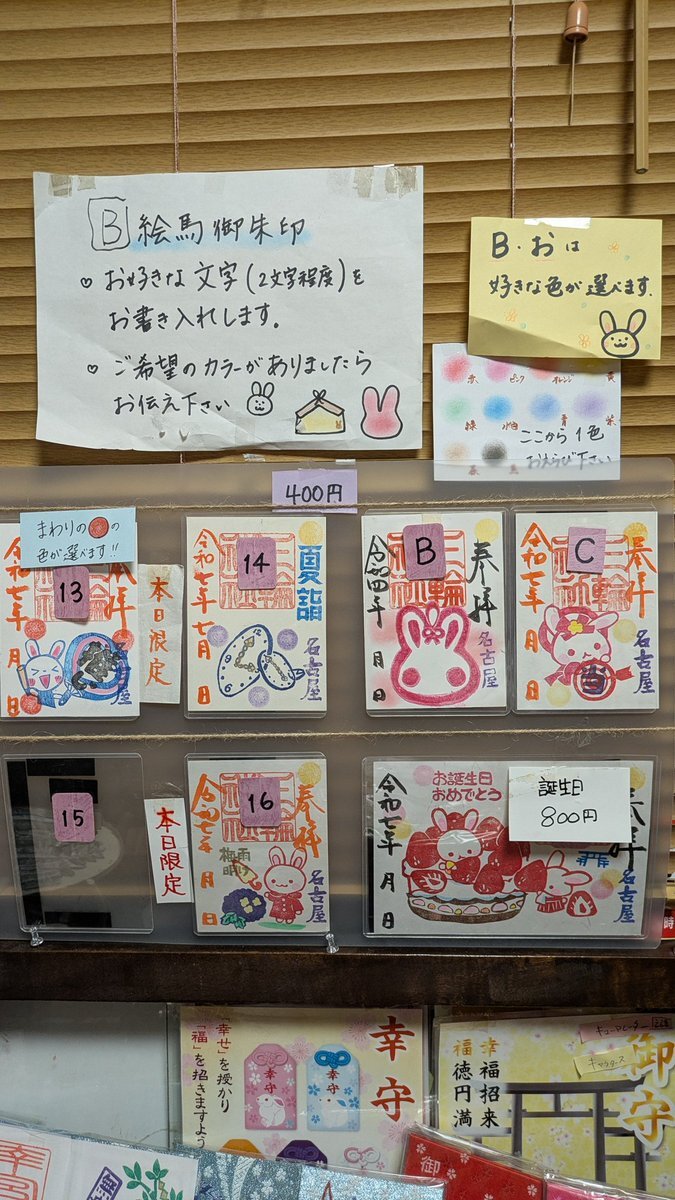 B 絵馬御朱印
♡ お好きな文字(2文字程度)を
お書き入れします。
♡ ご希望のカラーがありましたら
お伝え下さい
B・おは
好きな色が選べます.
赤 ピンク オレンジ 黄
緑 水色 青 紫
ここから1色
おえらび下さい
400円
まわりの●の
色が選べます!!
13
令和七年 月 日
奉拝
三輪神社
名古屋
本日限定
14
令和七年 七月 日
夏詣
三輪神社
名古屋
B
令和四年 月 日
奉拝
三輪神社
名古屋
C
令和七年 月 日
奉拝
三輪神社
名古屋
15
本日限定
16
令和七年 月 日
奉拝
三輪神社
梅雨明け
名古屋
お誕生日
おめでとう
令和七年 月 日
誕生日
800円
名古屋
「幸せ」を授かり
「福」を招きますよう
幸守
幸守
幸守
幸福招来
福徳円満
御守
キューアンドレーター
キャラクタース
御